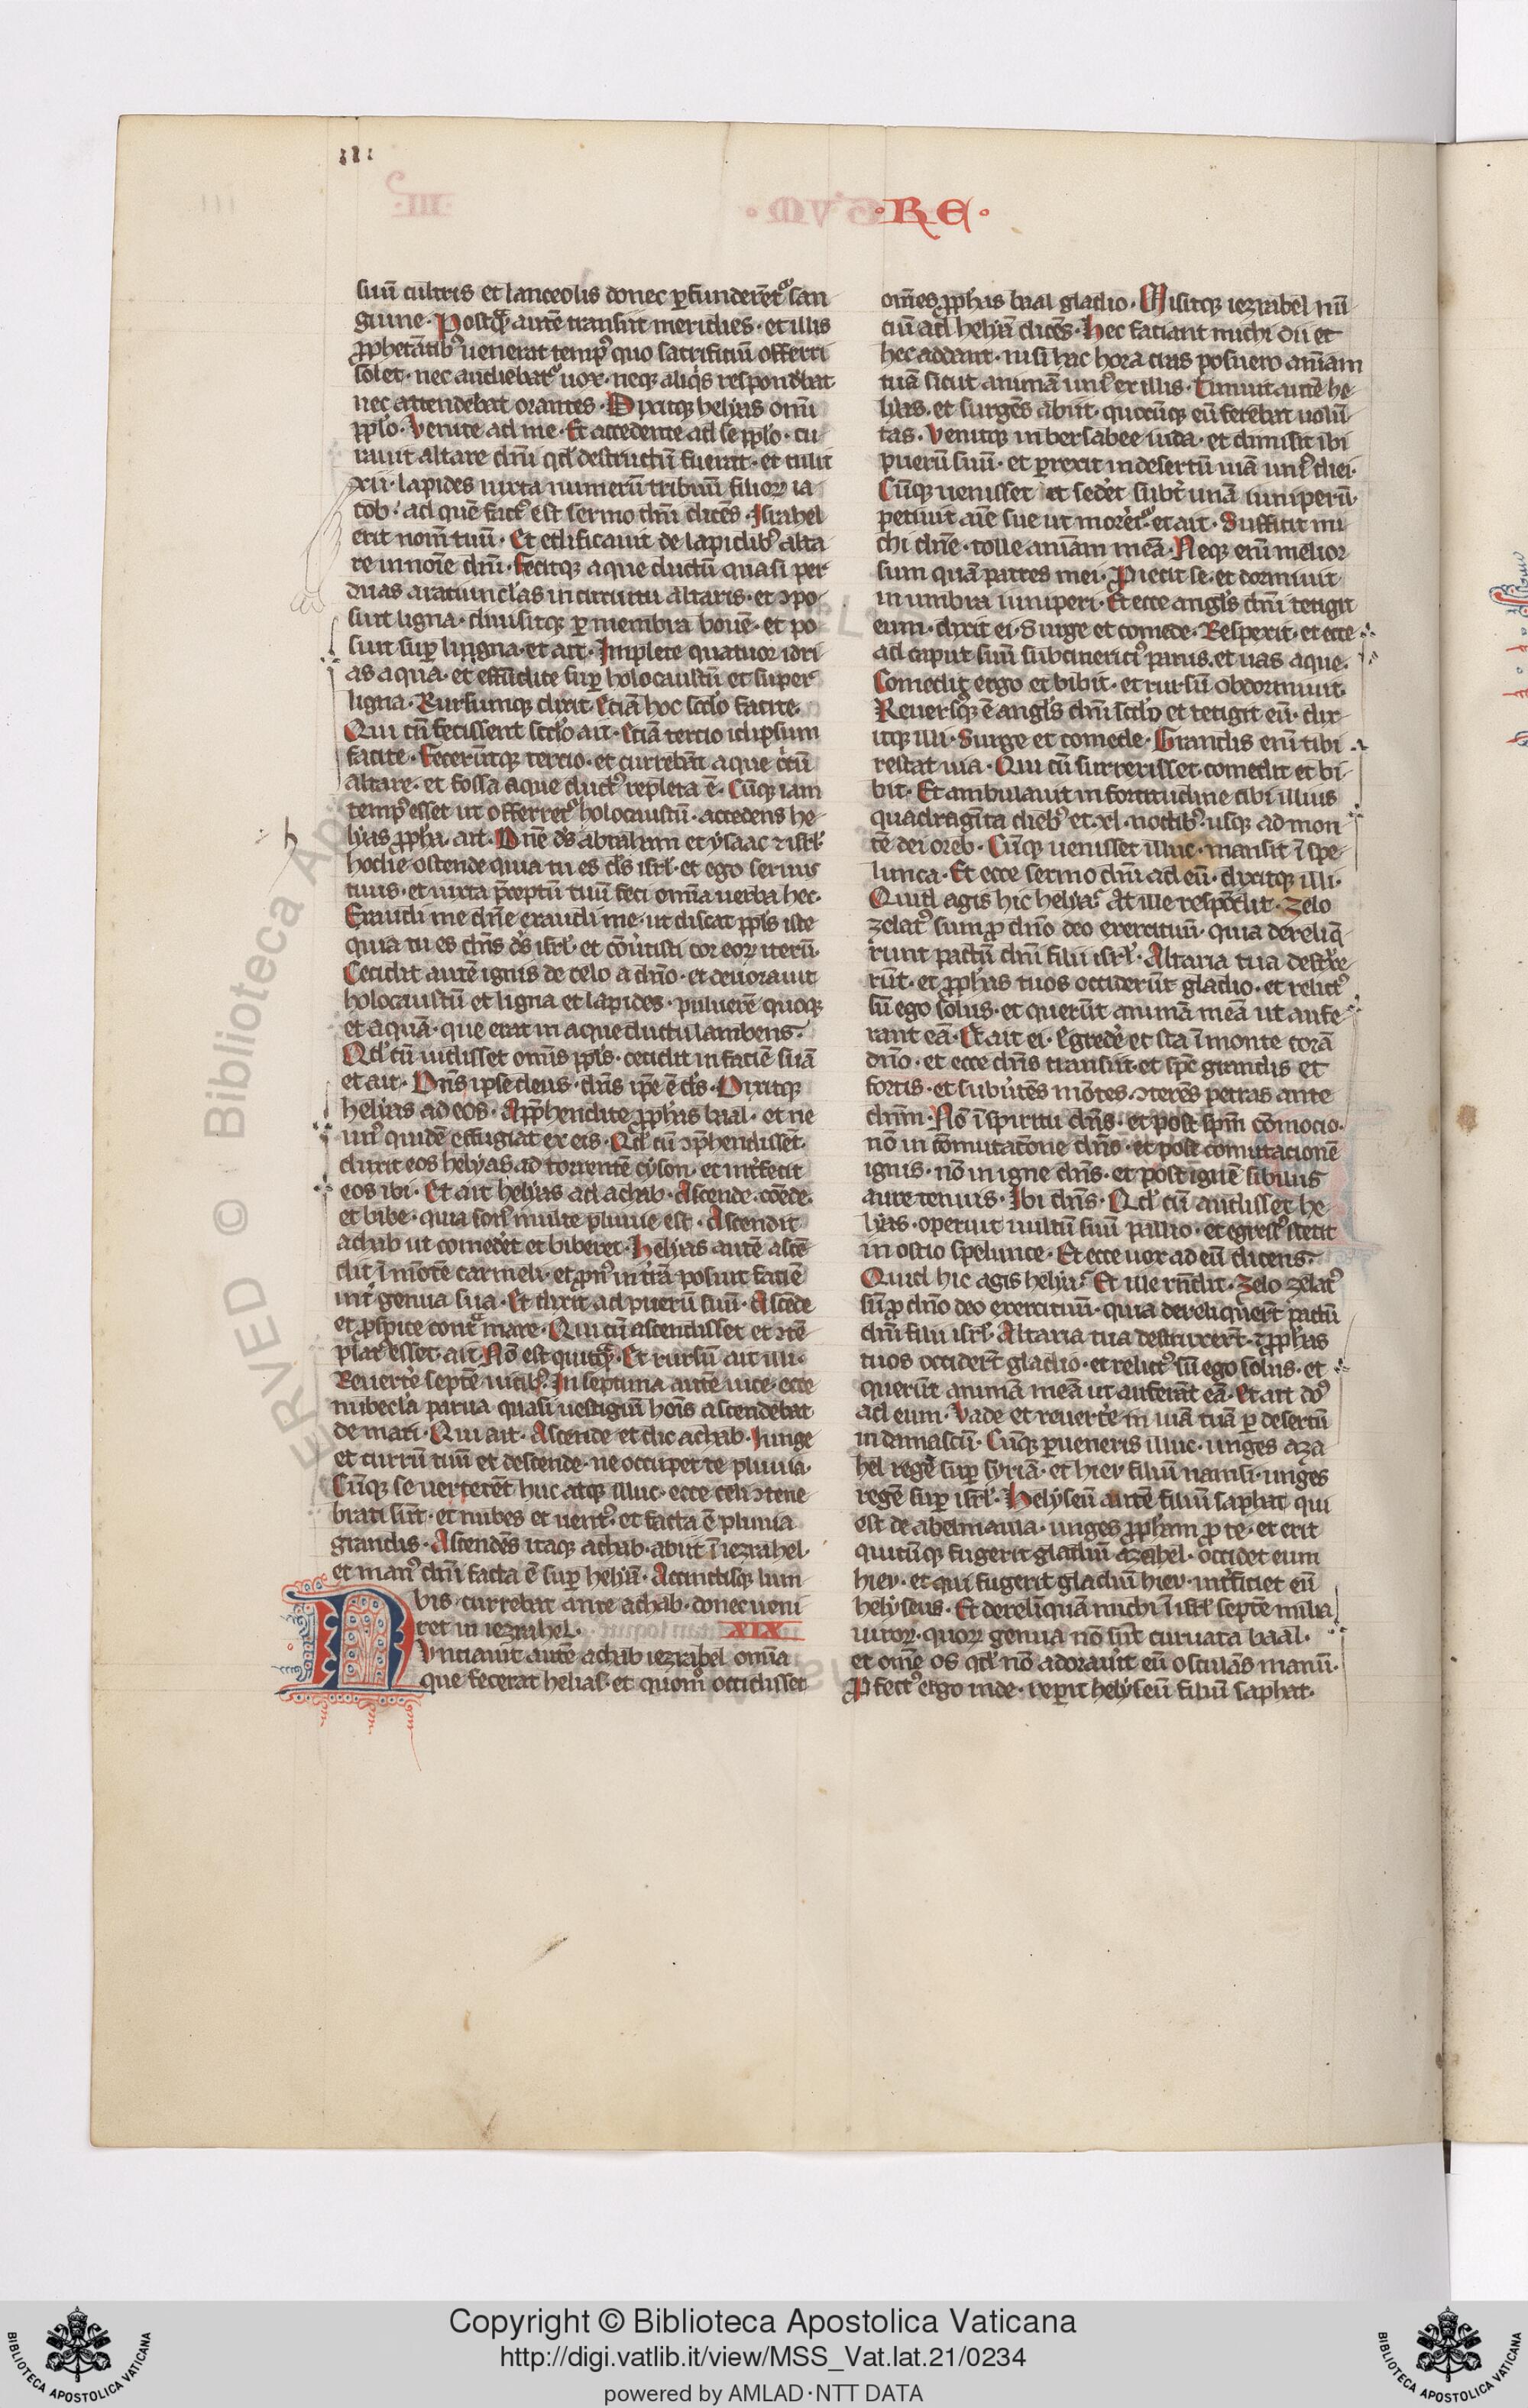 ·RE·
suū cultris et lanceolis donec ꝑfunderēt᷑ san
guine. Postꝙ̄ autē transiit meridies. et illis
ꝓphetātibꝰ uenerat tempꝰ quo sacrificiū offerri
solet. nec audiebat᷑ uox. neqꝫ aliqͥs respondebat
nec attendebat orantes. Dixitqꝫ helyas om̄i
pplo. Venite ad me. Et accedente ad se pplo. cu
rauit altare dn̄i qd̓ destructū fuerat. et tulit
xii. lapides iuxta numerū tribuū filioꝝ ia
cob. ad quē factꝰ est sermo dn̄i dicēs. Israhel
erit nom̄ tuū. Et edificauit de lapidibꝰ alta
re in noīe dn̄i. fecitqꝫ aque ductū quasi per
duas aratiunclas in circuitu altaris. et ꝯpo
suit ligna. diuisitqꝫ ꝑ membra bouē. et po
suit suꝑ lingna. et ait. Implete quatuor idri
as aqua. et effūdite suꝑ holocaustū et super
ligna. Rursumqꝫ dixit. Etiā hoc scd̓o facite.
Qui cū fecissent scd̓o ait. Etiā tercio idipsum
facite. Fecerūtqꝫ tercio. et currebāt aque circū
altare. et fossa aque ductꝰ repleta ē. Cūqꝫ iam
tempꝰ esset ut offerret᷑ holocaustū. accedens he
lyas ꝓpha. ait. Dn̄e ds̄ abraham et ysaac ⁊ isrl̓
hodie ostende quia tu es ds̄ isrl̓. et ego seruus
tuus. et iuxta p̄ceptū tuū feci om̄ia uerba hec.
Exaudi me dn̄e exaudi me. ut discat ppls̄ iste
quia tu es dn̄s ds̄ isrl̓. et cōuertisti cor eoꝝ iterū.
Cecidit autē ignis de celo a dn̄o. et deuorauit
holocaustū et ligna et lapides. puluerē quoqꝫ
et aquā. que erat in aque ductu lambens.
Qd̓ cū uidisset om̄is ppls̄. cecidit in faciē suā
et ait. Dn̄s ipse deus. dn̄s ip̄e ē ds̄. Dixitqꝫ
helyas ad eos. Appͣhendite ꝓphas baal. et ne
unꝰ quidē effugiat ex eis. Qd̓ cū ꝯpͣhendissēt.
duxit eos helyas ad torrentē cyson. et int̓fecit
eos ibi. Et ait helyas ad achab. Ascende. comēde.
et bibe. quia sonꝰ multe pluuie est. Ascendit
achab ut comedet̓ et biberet. Helyas autē ascē
dit ī mōtē carmeli. et ꝓnꝰ in t̓rā posuit faciē
int̓ genua sua. Et dixit ad puerū suū. Ascēde
et ꝓspice contͣ mare. Qui cū ascendisset et ꝯtē
platꝰ esset. ait. Nō est quitꝙ̄. Et rursū ait illi.
Reuert̓e septē uicibꝰ. In septima autē uice. ecce
nubecl̓a parua quasi uestigiū hoīs ascendebat
de mari. Qui ait. Ascende et dic achab. Junge
et currū tuū et descende. ne occupet te pluuia.
Cūqꝫ se uerterēt huc atqꝫ illuc. ecce celi ꝯtene
brati sūt. et nubes et uentꝰ. et facta ē pluuia
grandis. Ascendēs itaqꝫ achab. abiit ī iezrahel.
et manꝰ dn̄i facta ē suꝑ helyā. Accinctisqꝫ lum
bis. currebat ante achab. donec ueni
ret in iezrahel. XIX
Nunciauit autē achab iezrabel om̄ia
que fecerat helias. et quomͦ occidisset
om̄es ꝓphas baal gladio. Misitqꝫ iezrabel nū
ciū ad helyā dicēs. Hec faciant michi dii et
hec addant. nisi hac hora cras posuero animam
tuā sicut animā uniꝰ ex illis. Timuit autē he
lyas. et surgēs abiit. quocūqꝫ eū ferebat uolū
tas. Venitqꝫ in bersabee iuda. et dimisit ibi
puerū suū. et ꝑrexit in desertū uiā uniꝰ diei.
Cūqꝫ uenisset et sedet̓ subt̓ unā iuniperū.
petiuit aīe sue ut moret̓. et ait. Sufficit mi
chi dn̄e. tolle animam meā. Neqꝫ enī melior
sum quā patres mei. Proiecit se. et dormiuit
in umbra iuniperi. Et ecce angl̓s dn̄i tetigit
eum. dixit ei. Surge et comede. Respexit. et ecce
ad caput suū subcinericiꝰ panis. et uas aque.
Comedit ergo et bibit. et rursū obdormiuit.
Reuersꝰqꝫ ē angl̓s dn̄i scd̓o et tetigit eū. dix
itqꝫ illi. Surge et comede. Grandis enī tibi
restat uia. Qui cū surrexisset. comedit et bi
bit. Et ambulauit in fortitudine cibi illius
quadraginta diebꝰ et .xl. noctibꝰ. usqꝫ ad mon
tē dei oreb. Cūqꝫ uenisset illuc. mansit ī spe
lunca. Et ecce sermo dn̄i ad eū. dixitqꝫ illi.
Quid agis hic helya? At ille respōdit. Zelo
zelatꝰ sum ꝓ dn̄o deo exercituū. quia dereliq̄
runt pactū dn̄i filii isrl̓. Altaria tua destr̄xe
rūt. et ꝓphas tuos occiderūt gladio. et relictꝰ
sū ego solus. et querūt animā meā ut aufe
rant eā. Et ait ei. Egredere et sta ī monte corā
dn̄o. et ecce dn̄s transiit. et spc̄ grandis et
fortis. et subūtēs mōtes. ꝯterēs petras ante
dn̄m. Nō ī spiritu dn̄s. et post spm̄ cōmocio.
nō in cōmutatōne dn̄s. et post cōmutacionē
ignis. nō in igne dn̄s. et post ignē sibilus
aure tenuis. Ibi dn̄s. Qd̓ cū audisset he
lyas. operuit uultū suū pallio. et egressꝰ stetit
in ostio spelunce. Et ecce uox ad eū dicens.
Quid hic agis helya? Et ille rn̄dit. Zelo zelatꝰ
sū ꝓ dn̄o deo exercituū. quia dereliquerūt pactū
dn̄i filii isrl̓. Altaria tua destruxerūt. ⁊ ꝓphas
tuos occiderūt gladio. et relictꝰ sū ego solus. et
querūt animā meā ut auferāt eā. Et ait dn̄s
ad eum. Vade et reuert̓e in uiā tuā ꝑ desertū
in damascū. Cūqꝫ ꝑueneris illuc. unges aza
hel regē suꝑ syriā. et hieu filiū namsi. unges
regē suꝑ isrl̓. Helyseū autē filiū saphat qui
est de abelmaula. unges ꝓpham ꝓ te. et erit
quicūqꝫ fugerit gladiū azahel. occidet eum
hieu. et qui fugerit gladiū hieu. int̓ficiet eū
helyseus. Et derelinquā michi ī isrl̓ septē milia
uiroꝝ. quoꝝ genua nō sūt curuata baal.
et om̄e os qd̓ nō adorauit eū osculās manū.
Ꝓfectꝰ ergo inde. reꝑit helyseū filiū saphat.
Copyright © Biblioteca Apostolica Vaticana
http://digi.vatlib.it/view/MSS_Vat.lat.21/0234
powered by AMLAD·NTT DATA
BIBLIOTECA APOSTOLICA VATICANA
BIBLIOTECA APOSTOLICA VATICANA